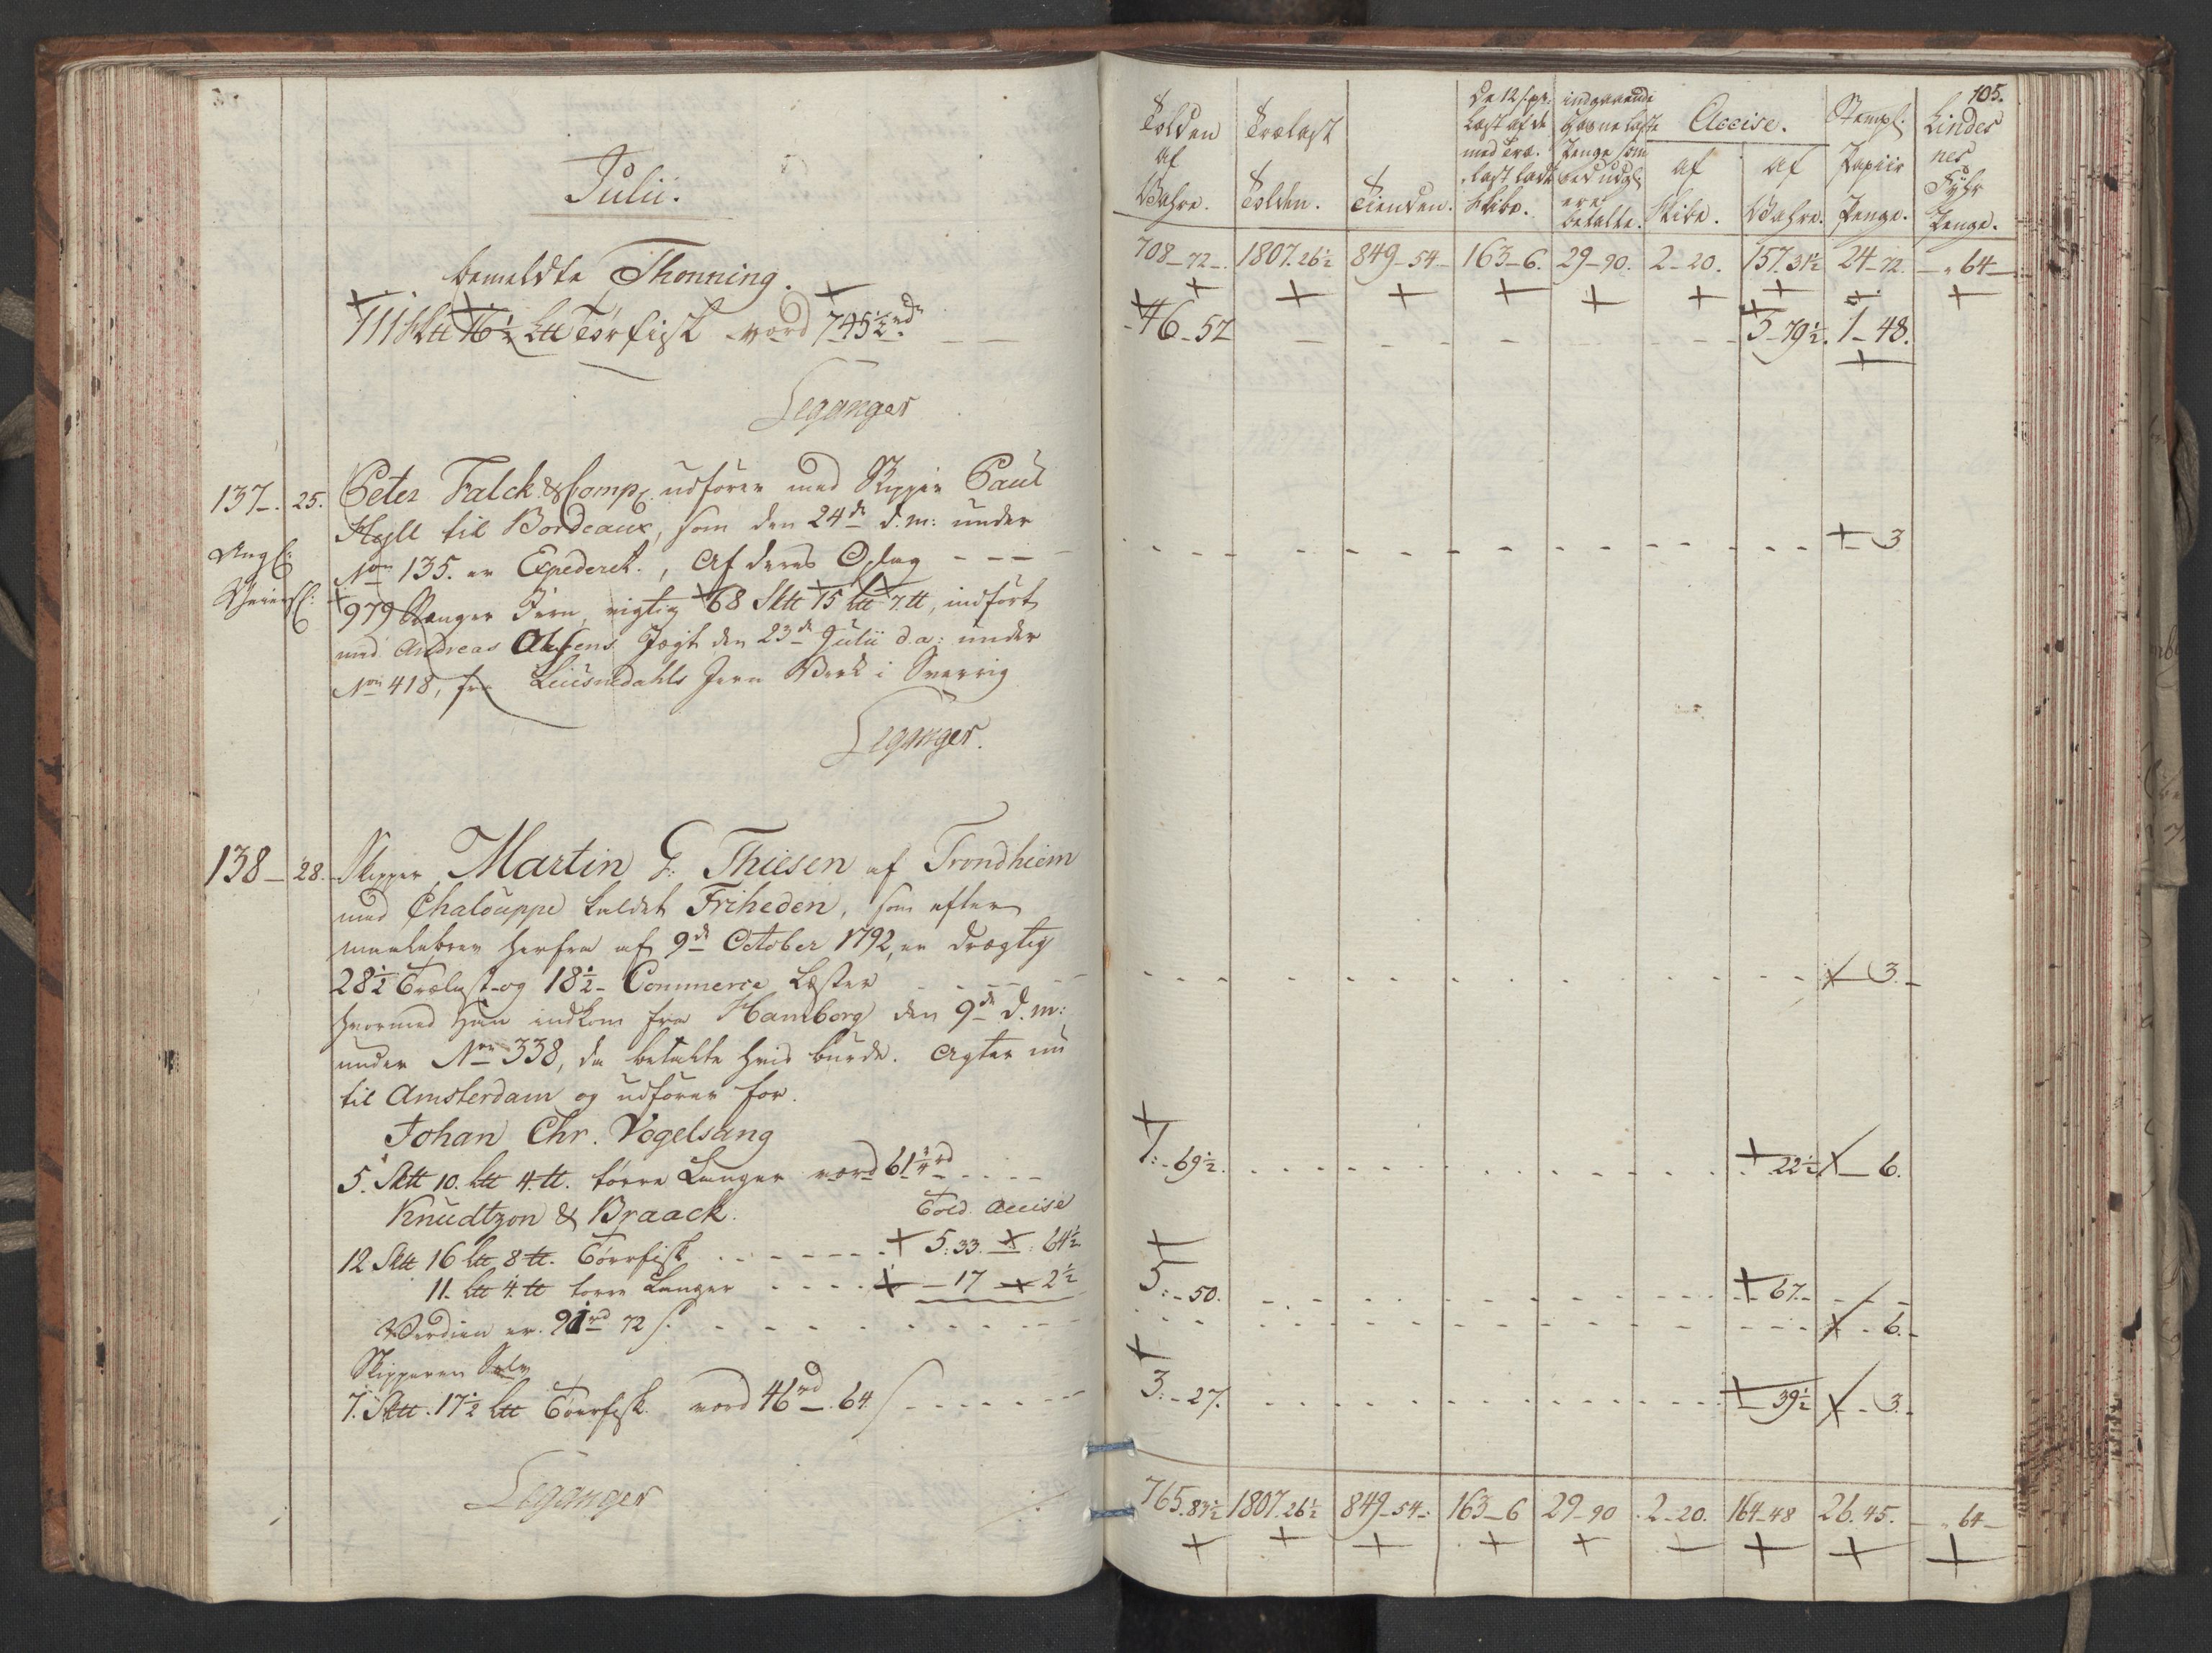 Julii.
bemeldte Thonning.
111 Sktt 16½ Ltt Tørfisk værd 745½ rd
Leganger
137. 25. Peter Falck & Comp. udfører med Skipper Paul
Hyll til Bordeaux, som den 24de d.m: under
Angl: Nor 135. er Expederet., Af deres Oplag
979 Stænger Jern, vigtig 68 Sktt 15 Ltt 7 tt, indført
med Andreas Olsens Jægt den 23de Julii d.a: under
Nor 418, fra Liusnedahls Jern Værk i Sverrig
Leganger.
138 28. Skipper Martin G: Thiesen af Trondhiem
med Chalouppe kaldet Friheden, som efter
maalebrev herfra af 9de October 1792, er drægtig
28½ Trælast og 18½ Commerce Læster
hvormed han indkom fra Hamborg den 9de d.m:
under Nor 338, da betalte hvis burde. Agter nu
til Amsterdam og udfører for.
Johan Chr. Vogelsang
5. Sktt 10. Ltt 4. tt. tørre Langer værd 61¼ rd
Knudtzon & Braack. Told. Accise
12 Sktt 16 Ltt 8 tt. Tørrfisk 5:33. : 64½
11. Ltt 4 tt tørre Langer 17 2½
Værdien er. 91 rd 72 s.
Skipperen Selv
7. Sktt. 17½ Ltt Tørrfisk. værd 46 rd. 64 s
Leganger
105.
Tolden af Vahre.
Trælast Tolden.
Tienden.
De 12 s. pr: Læst af de med Træ-last ladte Skibe.
indgaaende Havne Laste Penge som ved udgl: ere betalte.
Accise.
af Skibe.
af Vahre.
Stempl: Papiir Penge.
Lindesnes Fyhr Penge.
708-72. 1807.26½ 849-54 163-6. 29-90. 2-20. 157.31½ 24-72. -„64-
46-57 3-79½. 1-48.
3
3.
1:-69½. 22½ 6.
5:-50. 67.
6.
3:-27. 39½ 3.
765.83½ 1807.26½ 849-54-: 163-6 29-90 2-20. 164-48 26.45. -„64-